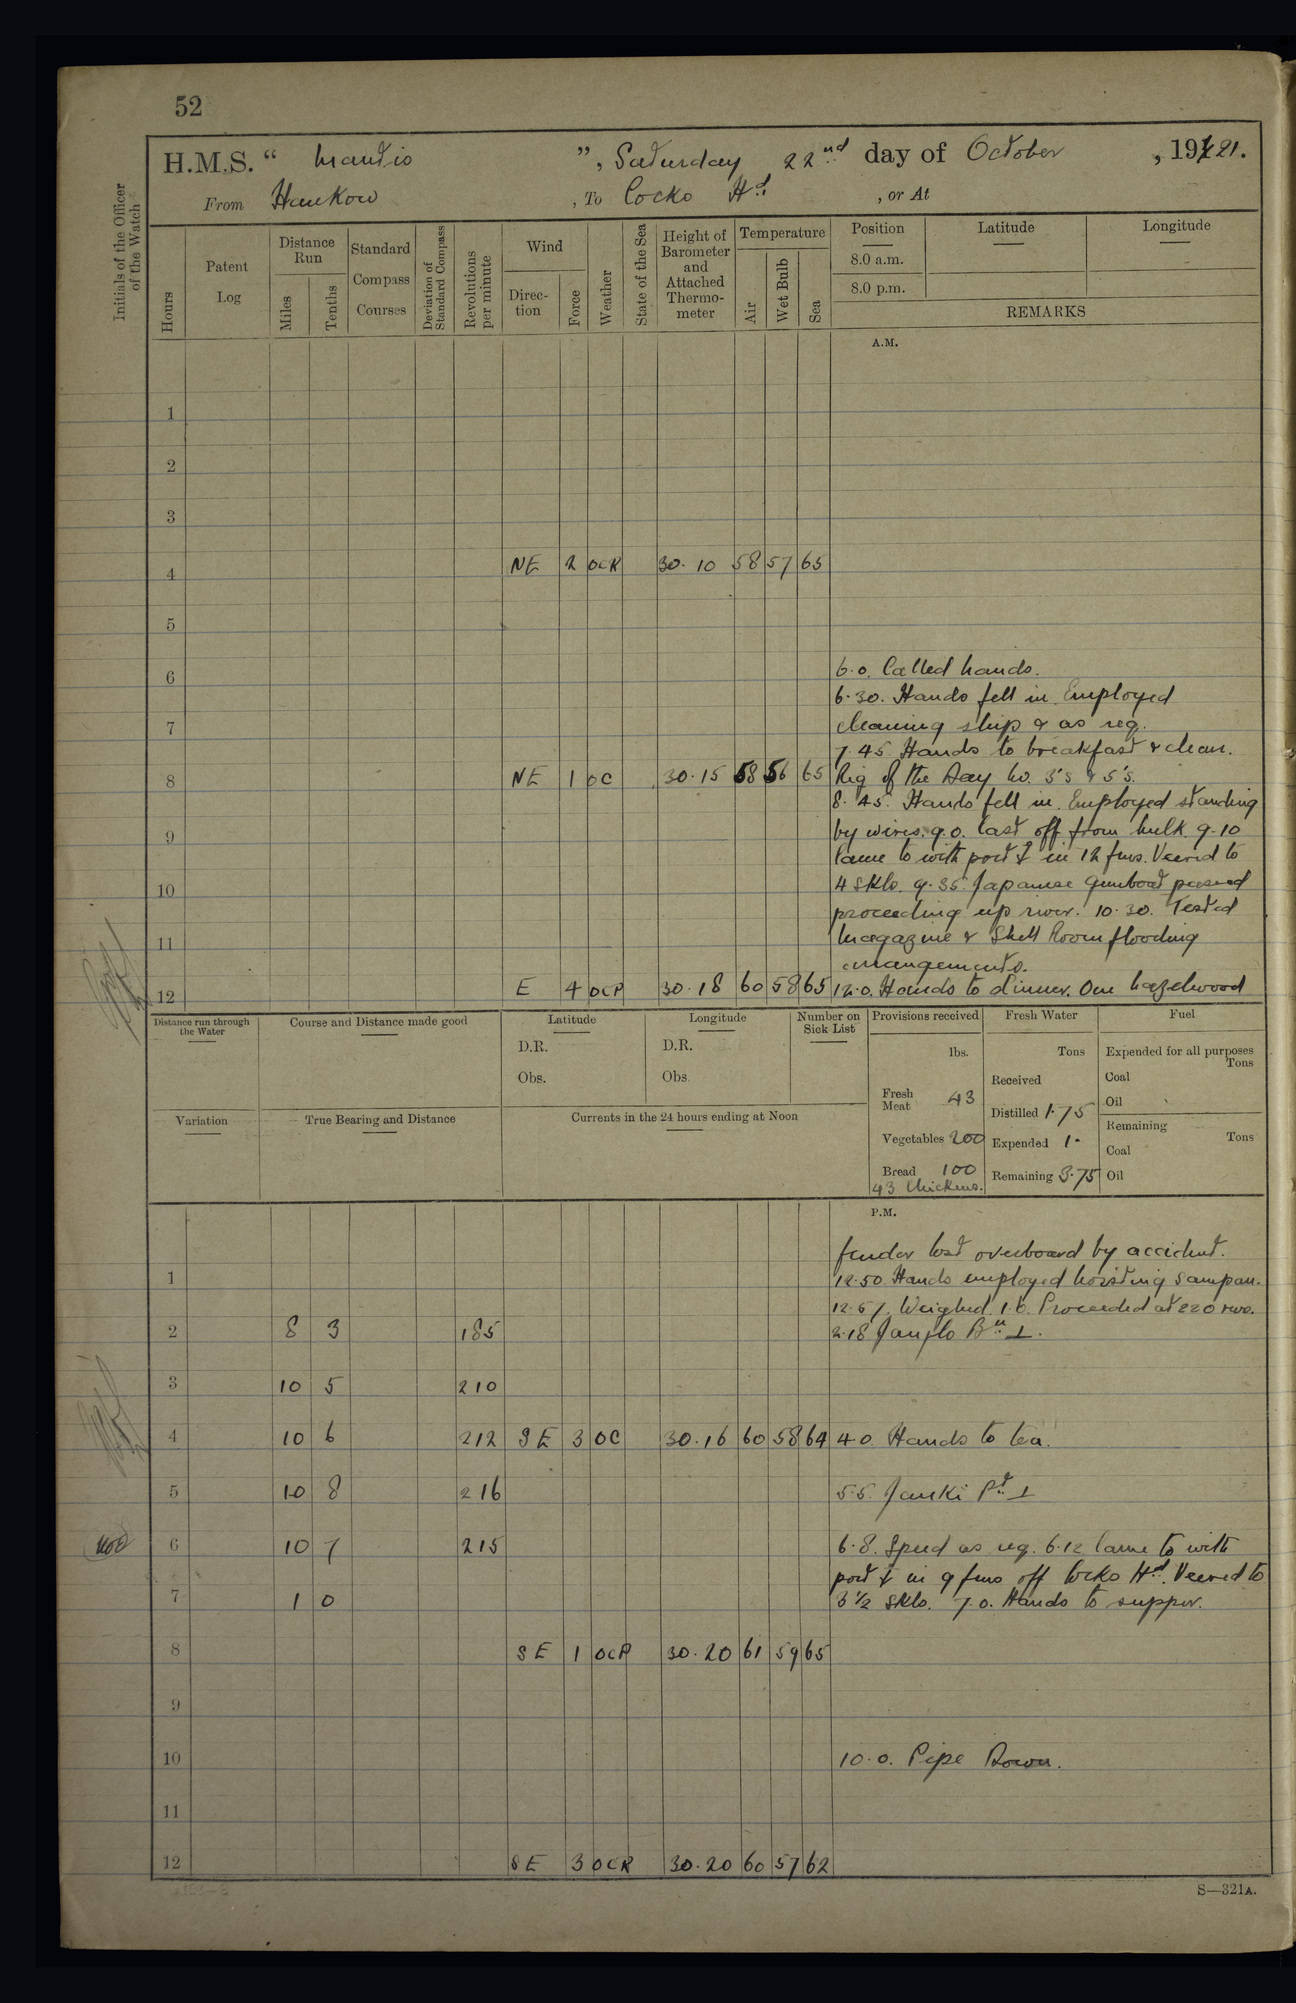 52
H.M.S. “ Mantis ”, Saturday 22nd day of October , 1921.
From Hankow , To Cocks Hd. , or At
Initials of the Officer of the Watch
Hours
Patent Log
Distance Run
Miles
Tenths
Standard Compass Courses
Deviation of Standard Compass
Revolutions per minute
Wind
Direction
Force
Weather
State of the Sea
Height of Barometer and Attached Thermometer
Temperature
Air
Wet Bulb
Sea
Position
8.0 a.m.
8.0 p.m.
Latitude
Longitude
REMARKS
A.M.
1
2
3
4 NE 2 OCR 30.10 58 57 65
5
6.0. Called hands.
6
6.30. Hands fell in. Employed
7 cleaning ship & as req.
7.45 Hands to breakfast & clean.
8 NE 1 OC 30.15 58 56 65 Rig of the Day No. 3's & 5's.
8.45. Hands fell in. Employed standing
9 by wires. 9.0. Cast off from hulk. 9.10
Came to with port ⚓ in 12 fms. Veered to
10 4 Skls. 9.35. Japanese gunboat passed
proceeding up river. 10.30. Tested
11 Magazine & Shell Room flooding
arrangements.
12 E 4 OCP 30.18 60 58 65 12.0. Hands to dinner. One hazelwood
Distance run through the Water
Course and Distance made good
Latitude
D.R.
Obs.
Longitude
D.R.
Obs.
Number on Sick List
Provisions received
lbs.
Fresh Meat 43
Vegetables 200
Bread 100
43 Chickens.
Fresh Water
Tons
Received
Distilled 1.75
Expended 1.
Remaining 3.75
Fuel
Expended for all purposes
Tons
Coal
Oil
Remaining
Tons
Coal
Oil
Variation
True Bearing and Distance
Currents in the 24 hours ending at Noon
P.M.
fender lost overboard by accident.
1 12.50. Hands employed hoisting sampan.
12.57. Weighed. 1.0. Proceeded at 220 revs.
2 8 3 185 2.18 Bn. ⊥.
3 10 5 210
4 10 6 212 SE 3 OC 30.16 60 58 64 4.0. Hands to tea.
5 10 8 216 5.5. Pt. ⊥
6 10 7 215 6.8. Speed as req. 6.12 Came to with
port ⚓ in 9 fms off Cocks Hd. Veered to
7 1 0 3 1/2 Skls. 7.0. Hands to supper.
8 SE 1 OCP 30.20 61 59 65
9
10 10.0. Pipe Down.
11
12 SE 3 OCR 30.20 60 57 62
S—321A.